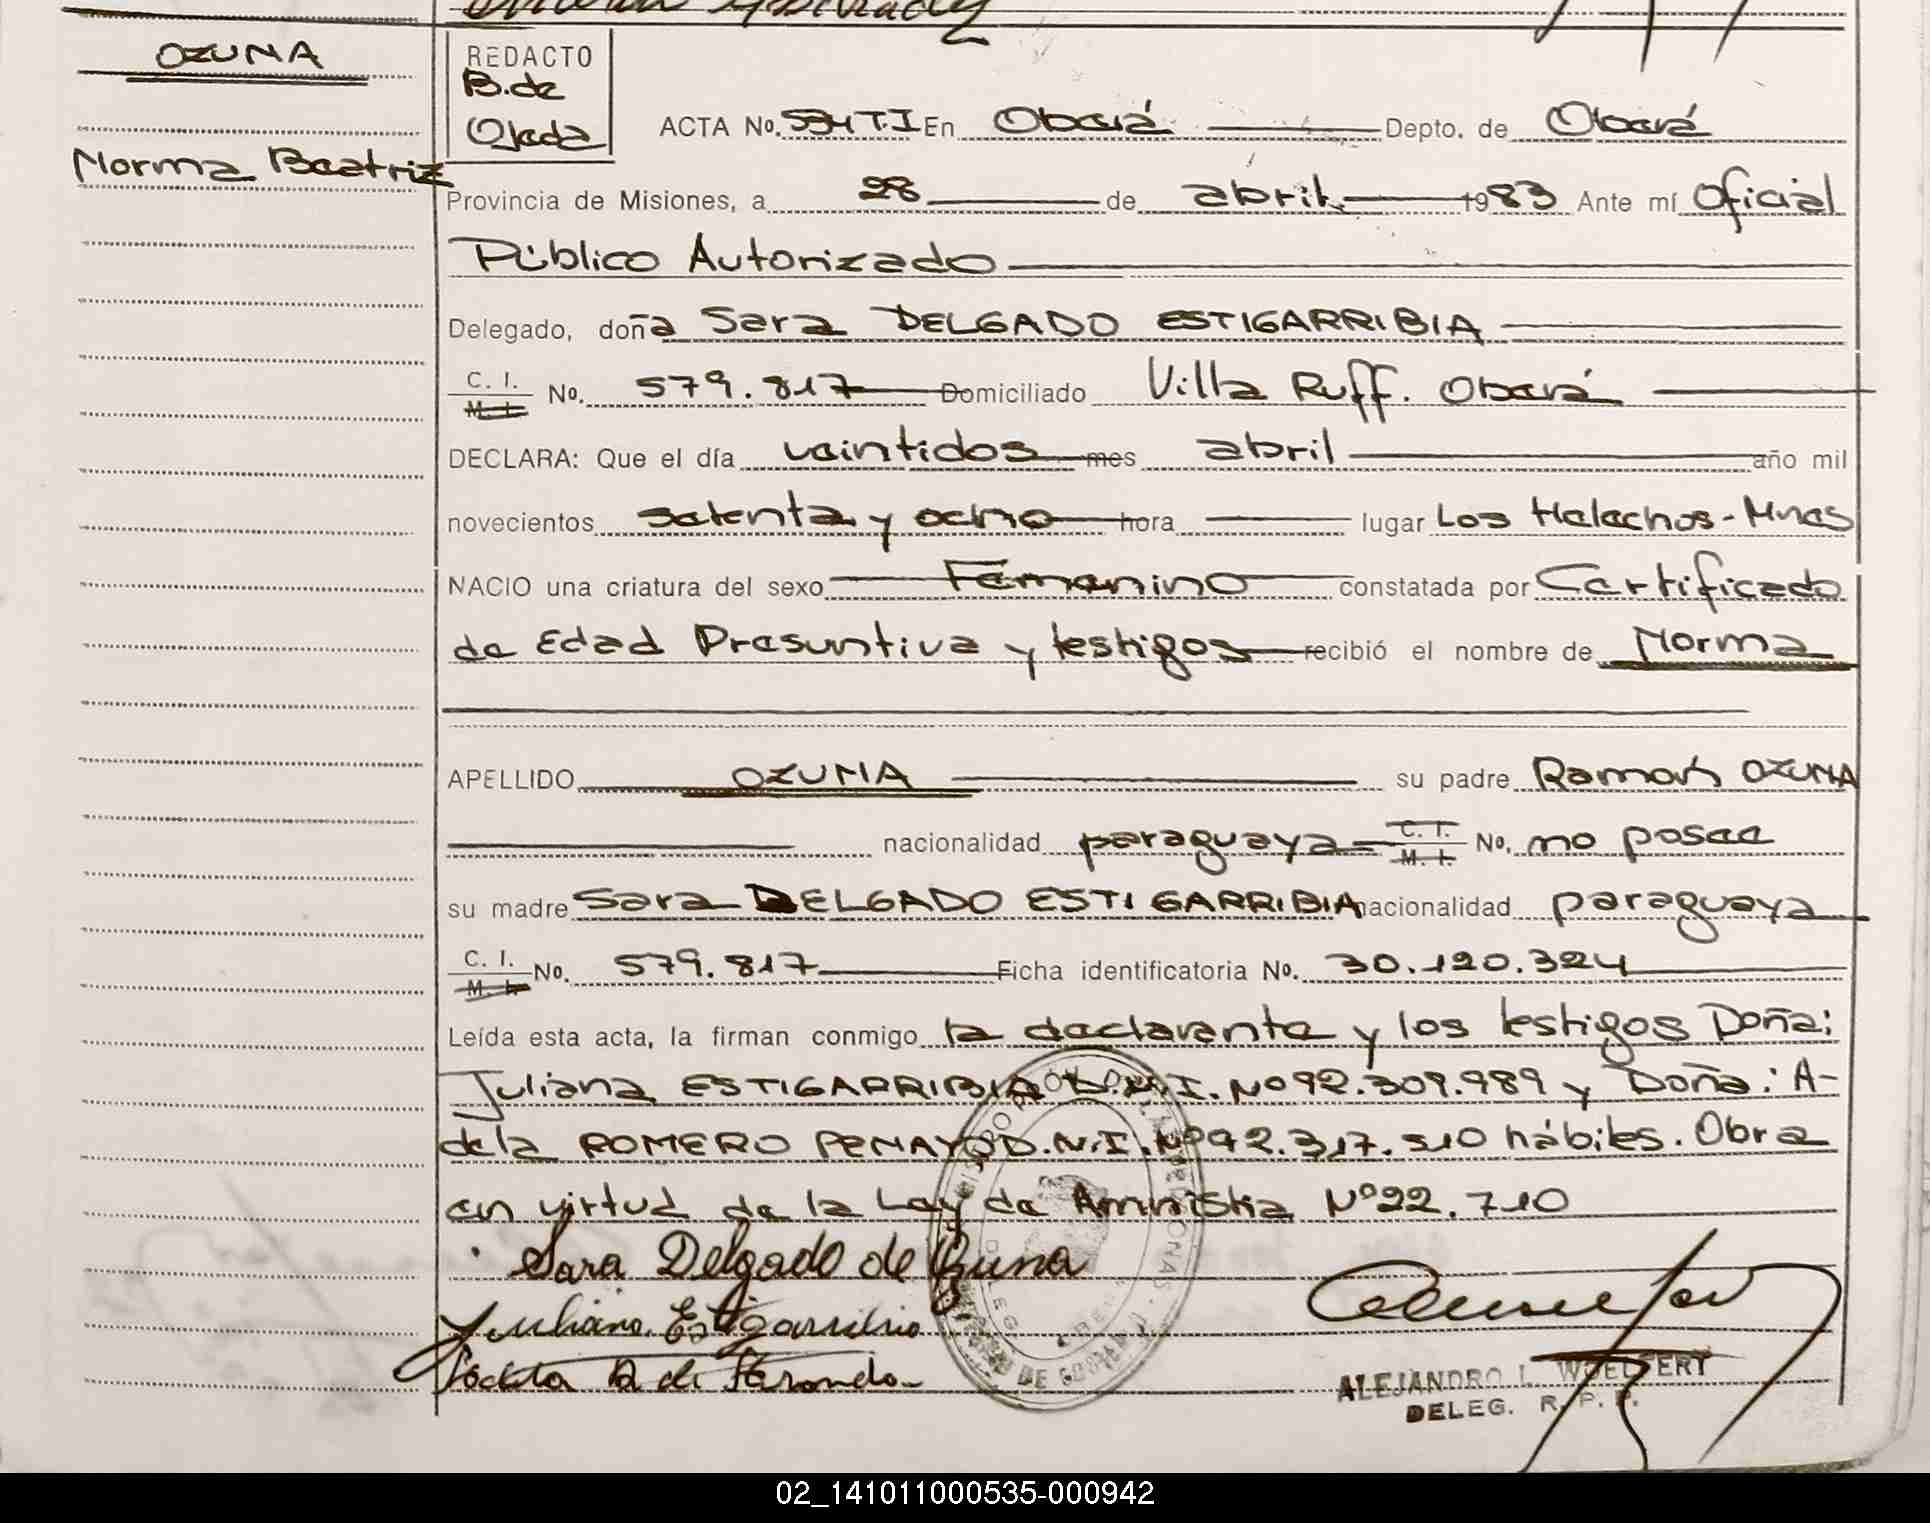 OZUNA
Norma Beatriz
REDACTO
B. de
Ojeda
ACTA No. 534 T.I En Oberá Depto. de Oberá
Provincia de Misiones, a 28 de abril 1983 Ante mí Oficial
Público Autorizado
Delegado, doña Sara DELGADO ESTIGARRIBIA
C. I. M. I. No. 579.817 Domiciliado Villa Ruff. Oberá
DECLARA: Que el día veintidos mes abril año mil
novecientos setenta y ocho hora lugar Los Helechos-Mnes
NACIO una criatura del sexo Femenino constatada por Certificado
de Edad Presuntiva y testigos recibió el nombre de Norma
APELLIDO OZUNA su padre Ramón OZUNA
nacionalidad paraguaya C. I. M. I. No. no posee
su madre Sara DELGADO ESTIGARRIBIA nacionalidad paraguaya
C. I. M. I. No. 579.817 Ficha identificatoria No. 30.120.324
Leída esta acta, la firman conmigo la declarante y los testigos Doña:
Juliana ESTIGARRIBIA D.N.I. Nº 92.309.989 y Doña: A-
dela ROMERO PENAYO D.N.I. Nº 92.317.510 hábiles. Obra
en virtud de la Ley de Amnistia Nº 22.710
Sara Delgado de Ozuna
Juliana Estigarribia
ALEJANDRO I. WOELFERT
DELEG. R. P. P.
02_141011000535-000942